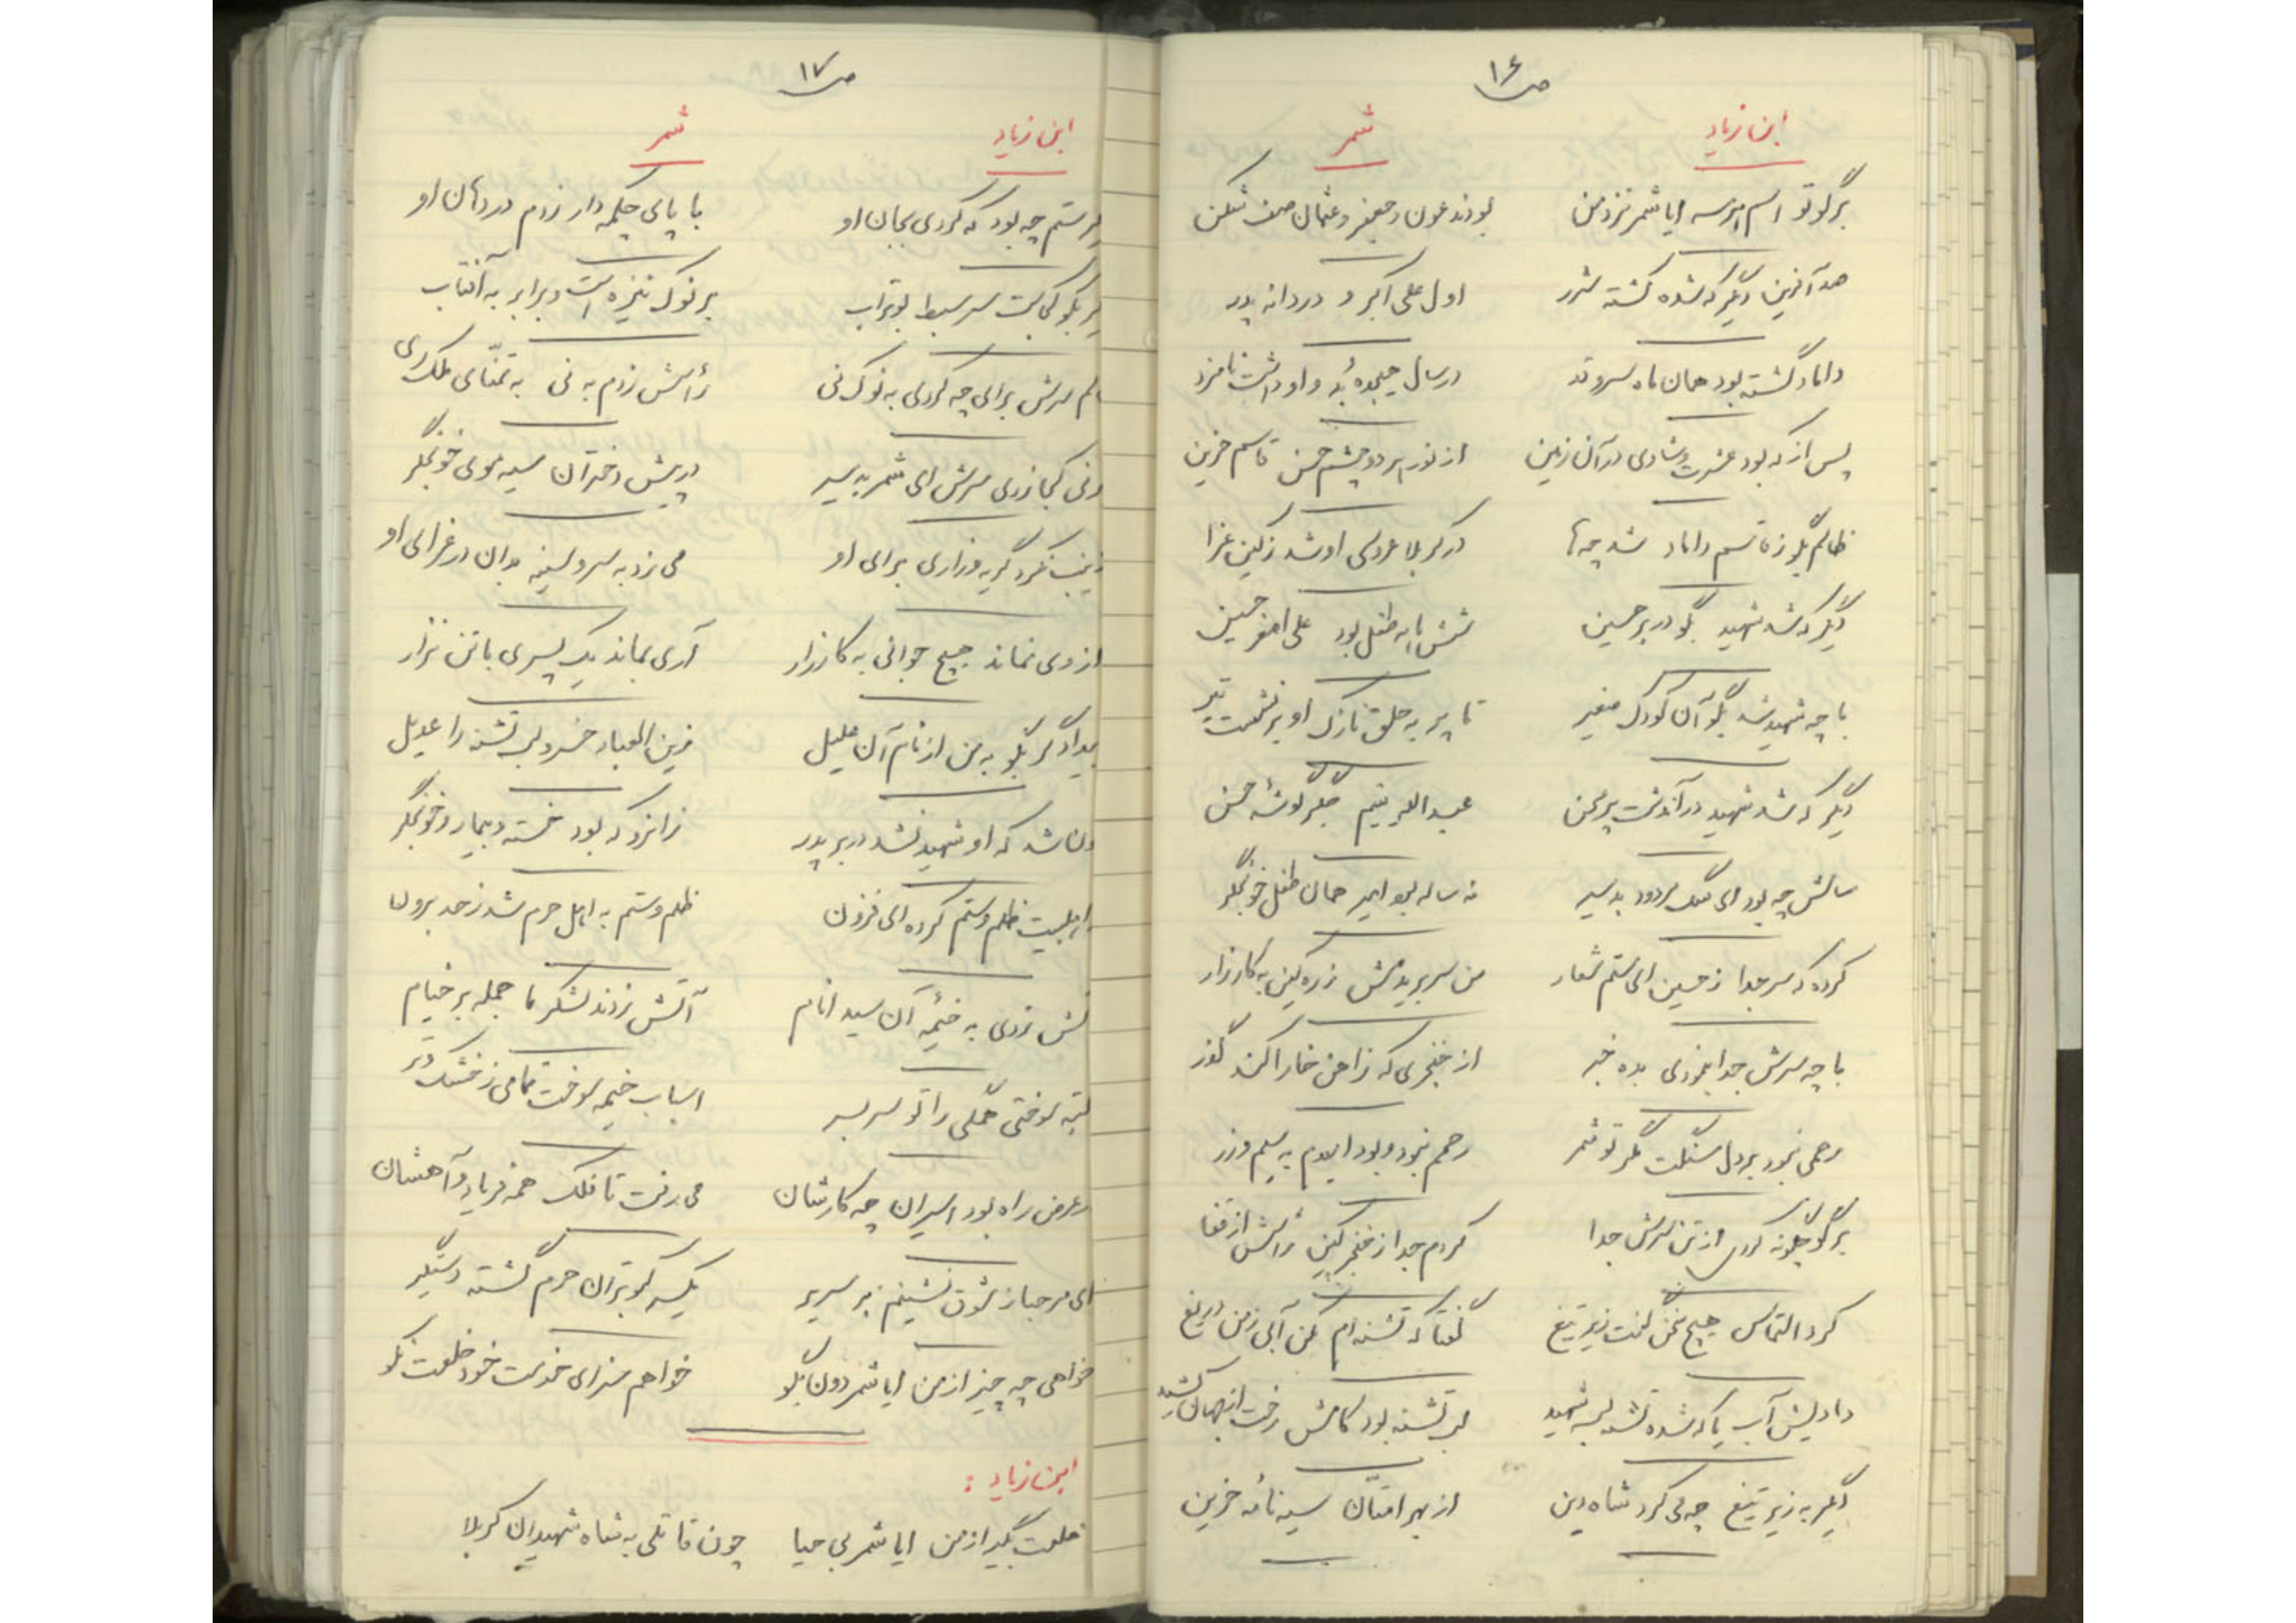 ص ۱۶
ابن زیاد شمر
برگو تو اسم ایا شمر نزد من بودند عون و جعفر و عثمان صف شکن
صد آفرین دیگر که شده کشته شرر اول علی اکبر و دردانه پدر
داماد گشته بود همان ماه سرو قد در سال هیجده بُد و او داشت نامزد
پس از که بود عشرت و شادی در آن زمین از نور هر دو چشم حسن قاسم حزین
ظالم بگو ز قاسم داماد شد چه‌ها در کربلا عروسی او شد ز کین عزا
دیگر که شد شهید بگو در بر حسین شش ماهه طفل بود علی اصغر حسین
با چه شهید شد بگو آن کودک صغیر تا پر به حلق نازک او بر نشست تیر
دیگر که شد شهید در آندشت پر محن عبداله یتیم جگرگوشه حسن
سالش چه بود ای سگ مردود بد سیر نه ساله بود امیر همان طفل خونجگر
کرده که سر جدا ز حسین ای ستم شعار من سر بریدمش ز ره کین به کارزار
با چه سرش جدا بنمودی بده خبر از خنجری که ز آهن خارا کند گذر
رحمی نبود بر دل سنگت مگر تو شمر رحمم نبود و بود امیدم به سیم و زر
برگو چگونه کردی از تن سرش جدا کردم جدا ز خنجر کین رأسش از قفا
کرد التماس هیچ سخن گفت زیر تیغ گفتا که تشنه‌ام مکن آبی ز من دریغ
دادیش آب یا که شده تشنه لب شهید لب تشنه بود کامش رخت از جهان کشید
دیگر به زیر تیغ چه می کرد شاه دین از بهر امتان سیه نامه حزین
ص ۱۷
ابن زیاد شمر
دیگر ستم چه بود که کردی بجان او با پای چکمه دار زدم در دهان او
بگو کجاست سر سبط بوتراب بر نوک نیزه است و برابر به آفتاب
ظالم سرش برای چه کردی به نوک نی رأسش زدم به نی به تمنای ملک ری
کجا زدی سرش ای شمر بد سیر در پیش دختران سیه موی خونجگر
زینب نکرد گریه و زاری برای او می زد به سر و سینه در عزای او
از وی نماند هیچ جوانی به کارزار آری بماند یک پسری با تن نزار
بیدادگر بگو به من از نام آن علیل زین العباد خسرو لب تشنه را عدیل
شد که او شهید نشد در بر پدر زانرو که بود خسته و بیمار و خونجگر
اهلبیت ظلم و ستم کرده‌ای فزون ظلم و ستم به اهل حرم شد ز حد برون
آتش زدی به خیمه آن سید انام آتش زدند لشکر ما جمله بر خیام
سوختی همگی را تو سر بسر اسباب خیمه سوخت تمامی ز خشک و تر
در عرض راه بود اسیران چه کارشان می رفت تا فلک همه فریاد و آهشان
ای مرحبا ز شوق نشینم بر سریر یکسر کبوتران حرم گشته دستگیر
خواهی چه چیز از من ایا شمر دون بگو خواهم سزای خدمت خود خلعت نکو
ابن زیاد :
خلعت بگیر از من ایا شمر بی حیا چون قاتلی به شاه شهیدان کربلا